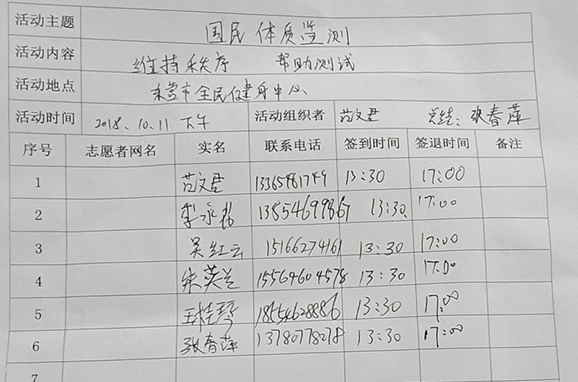 活动主题 国民体质监测
活动内容 维持秩序 帮助测试
活动地点 东营市全民健身中心
活动时间 2018.10.11 下午 活动组织者 范文君 总结:张春萍
序号 志愿者网名 实名 联系电话 签到时间 签退时间 备注
1 范文君 13:30 17:00
2 李永 13854699867 13:30 17:00
3 吴红云 15166274161 13:30 17:00
4 宋英兰 15564604578 13:30 17:00
5 王桂琴 18554628886 13:30 17:00
6 张春萍 13780778278 13:30 17:00
7